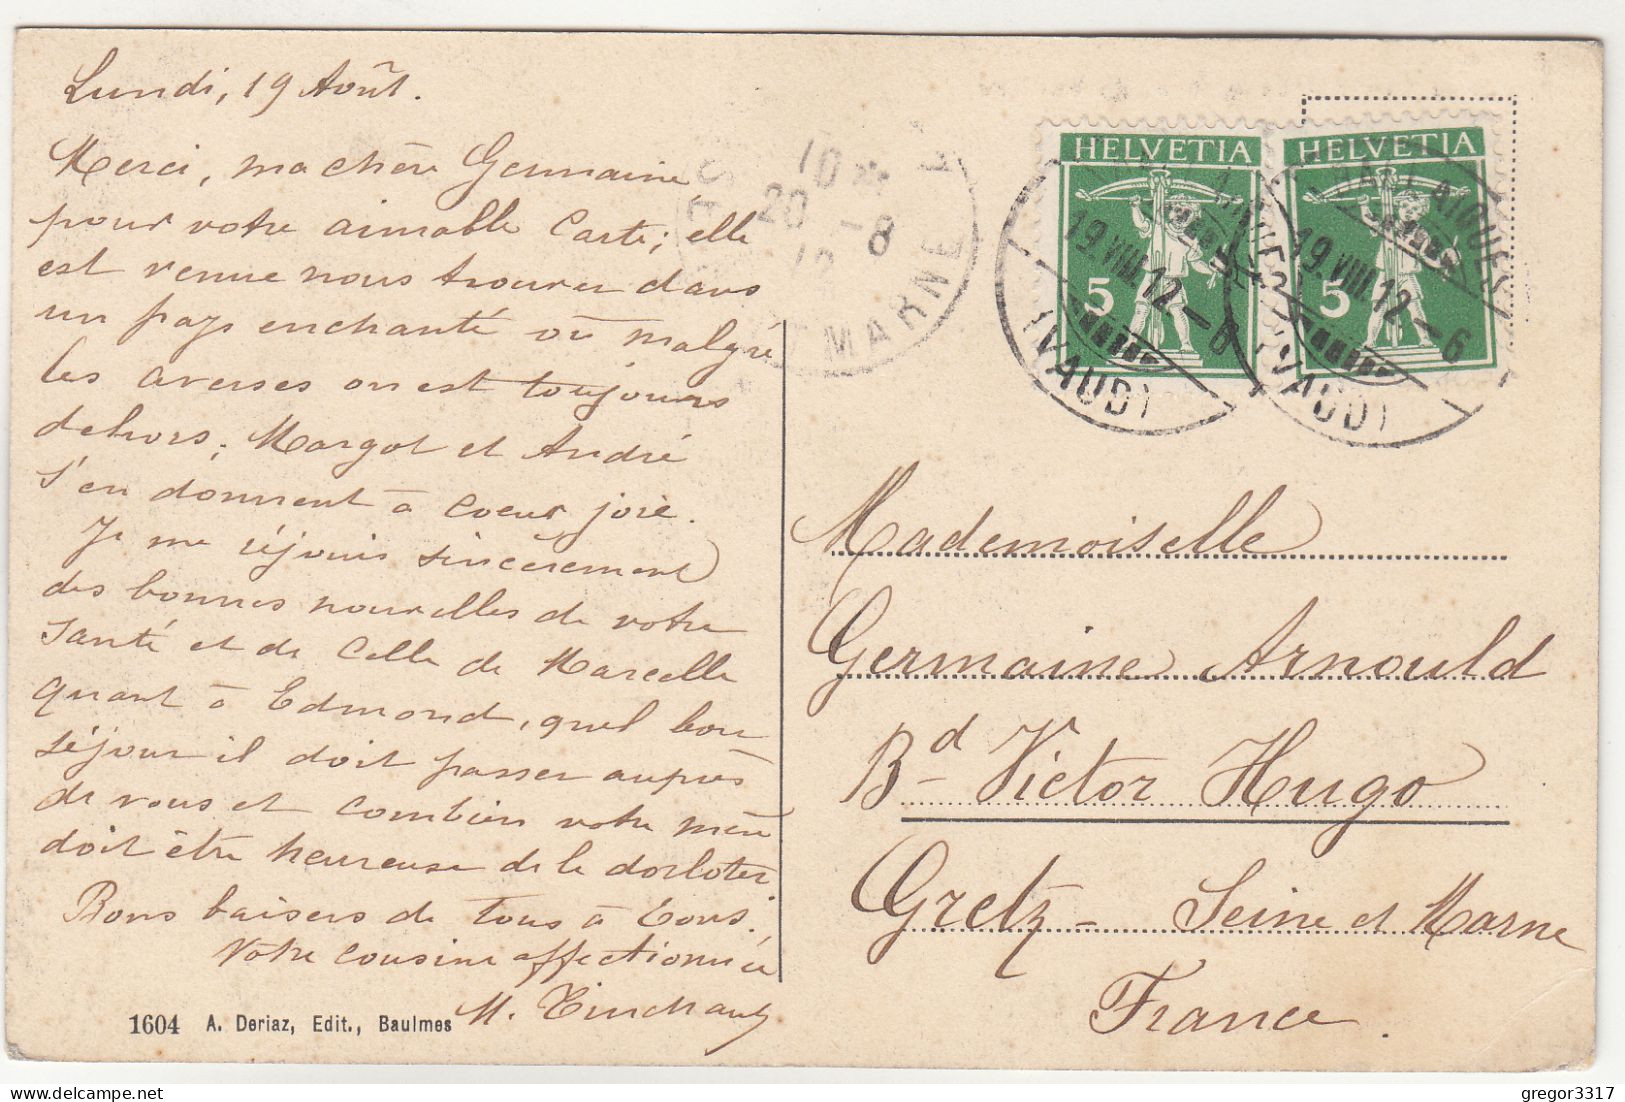 Lundi, 19 Août.
Merci, ma chère Germaine
pour votre aimable Carte; elle
est venue nous trouver dans
un pays enchanté où malgré
les averses on est toujours
dehors; Margot et André
s'en donnent à coeur joie.
Je me réjouis sincèrement
des bonnes nouvelles de votre
santé et de celle de Marcelle
quant à Edmond, quel bon
séjour il doit passer auprès
de vous et combien votre mère
doit être heureuse de le dorloter
Bons baisers de tous à tous.
Votre cousine affectionnée
M.
1604 A. Deriaz, Edit., Baulmes
10
20 -8
MARNE
HELVETIA
5
HELVETIA
5
19.VIII.12-6
(VAUD)
19.VIII.12-6
(VAUD)
Mademoiselle
Germaine Arnould
Bd Victor Hugo
Gretz - Seine et Marne
France.
gregor3317